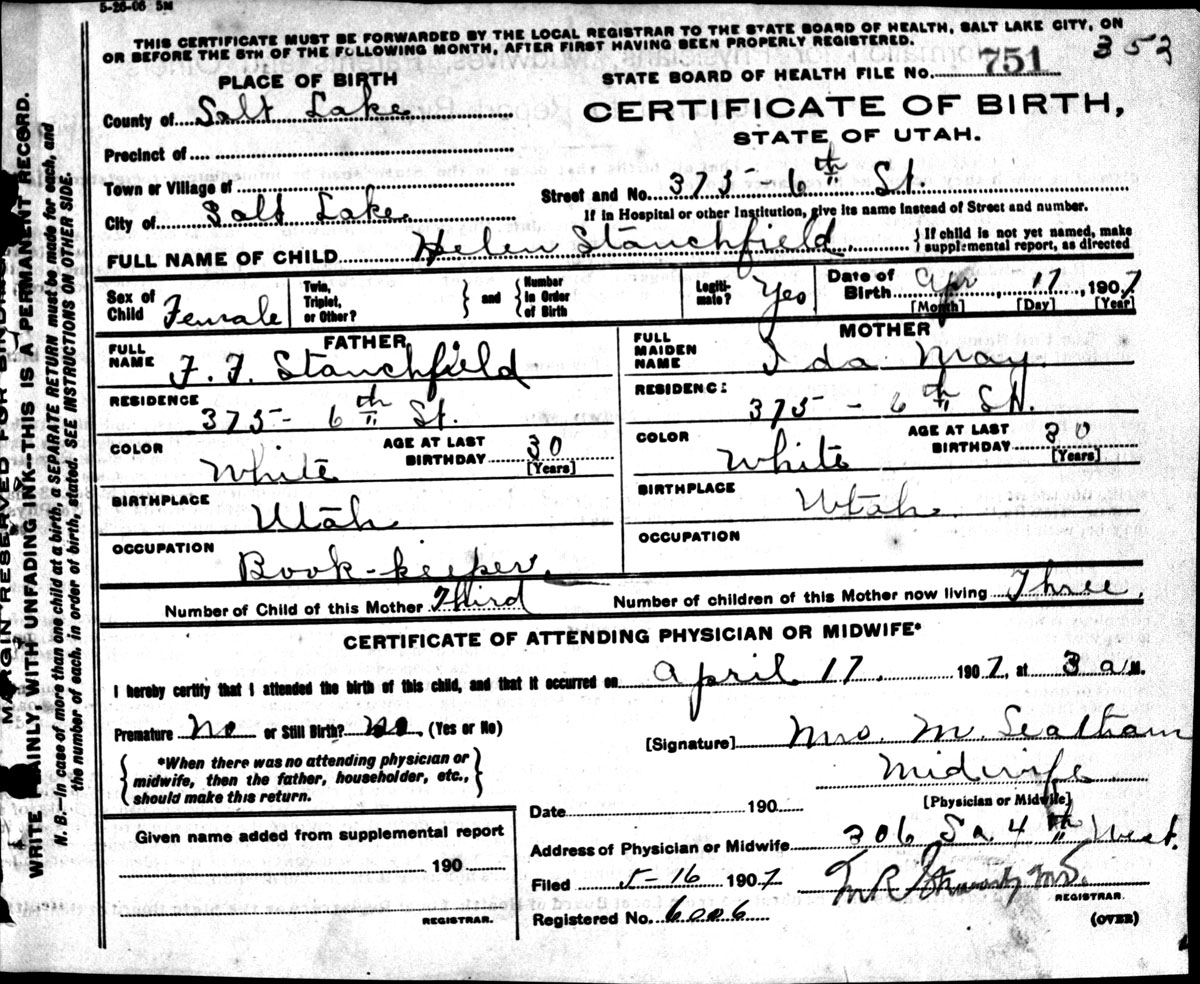 5-26-06 5M
THIS CERTIFICATE MUST BE FORWARDED BY THE LOCAL REGISTRAR TO THE STATE BOARD OF HEALTH, SALT LAKE CITY, ON
OR BEFORE THE 5TH OF THE FOLLOWING MONTH, AFTER FIRST HAVING BEEN PROPERLY REGISTERED.
353
PLACE OF BIRTH
STATE BOARD OF HEALTH FILE NO. 751
County of Salt Lake
CERTIFICATE OF BIRTH,
STATE OF UTAH.
Precinct of
Town or Village of
Street and No. 375 - 6th St.
City of Salt Lake
If in Hospital or other Institution, give its name instead of Street and number.
FULL NAME OF CHILD Helen Stanchfield
If child is not yet named, make
supplemental report, as directed
Sex of Child Female
Twin, Triplet, or Other?
and
Number in Order of Birth
Legitimate? Yes
Date of Birth Apr 17, 1907
[Month] [Day] [Year]
FATHER
FULL NAME F. F. Stanchfield
RESIDENCE 375 - 6th St.
COLOR White
AGE AT LAST BIRTHDAY 30
[Years]
BIRTHPLACE Utah
OCCUPATION Book-keeper.
MOTHER
FULL MAIDEN NAME Ida May
RESIDENCE 375 - 6th St.
COLOR White
AGE AT LAST BIRTHDAY 30
[Years]
BIRTHPLACE Utah
OCCUPATION
Number of Child of this Mother Third
Number of children of this Mother now living Three.
CERTIFICATE OF ATTENDING PHYSICIAN OR MIDWIFE*
I hereby certify that I attended the birth of this child, and that it occurred on April 17, 1907, at 3 a M.
Premature No or Still Birth? no (Yes or No)
*When there was no attending physician or
midwife, then the father, householder, etc.,
should make this return.
[Signature] Mrs. M.
Midwife
[Physician or Midwife]
Date 190
Given name added from supplemental report
190
REGISTRAR.
Address of Physician or Midwife 306 So 4th West.
Filed 5-16 1907
REGISTRAR.
Registered No. 6006
(OVER)
MARGIN RESERVED FOR BINDING
WRITE PLAINLY, WITH UNFADING INK--THIS IS A PERMANENT RECORD.
N. B.--In case of more than one child at a birth, a SEPARATE RETURN must be made for each, and
the number of each, in order of birth, stated. SEE INSTRUCTIONS ON OTHER SIDE.